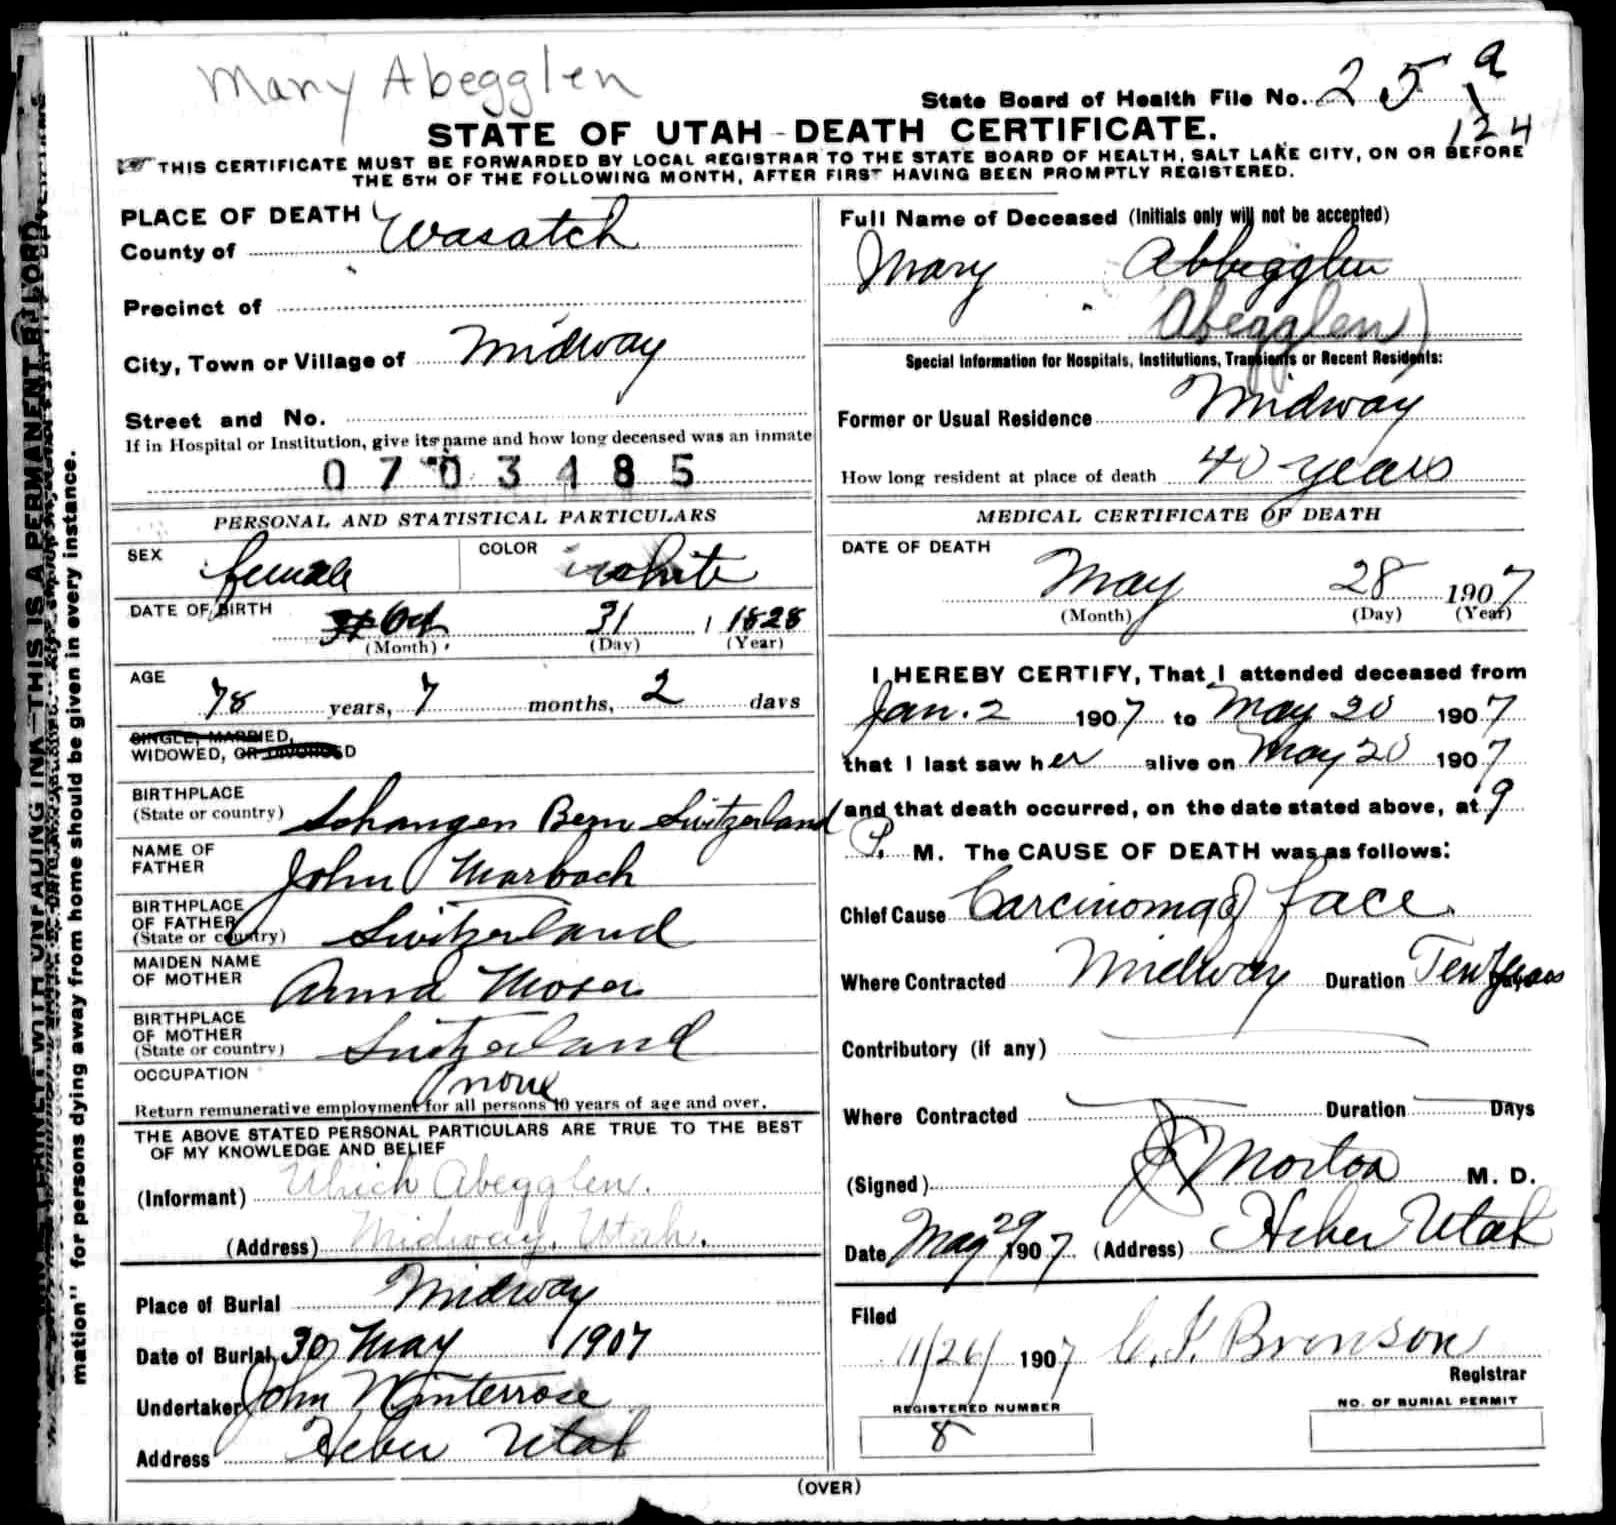 Mary Abegglen
State Board of Health File No. 25 a
124
STATE OF UTAH - DEATH CERTIFICATE.
THIS CERTIFICATE MUST BE FORWARDED BY LOCAL REGISTRAR TO THE STATE BOARD OF HEALTH, SALT LAKE CITY, ON OR BEFORE
THE 5TH OF THE FOLLOWING MONTH, AFTER FIRST HAVING BEEN PROMPTLY REGISTERED.
PLACE OF DEATH
County of Wasatch
Precinct of
City, Town or Village of Midway
Street and No.
If in Hospital or Institution, give its name and how long deceased was an inmate
0703485
PERSONAL AND STATISTICAL PARTICULARS
SEX female COLOR white
DATE OF BIRTH Oct 31 1828
(Month) (Day) (Year)
AGE
78 years, 7 months, 2 days
SINGLE, MARRIED,
WIDOWED, OR DIVORCED
BIRTHPLACE
(State or country) Schangen Bern Switzerland
NAME OF
FATHER John Marbach
BIRTHPLACE
OF FATHER
(State or country) Switzerland
MAIDEN NAME
OF MOTHER Anna Moser
BIRTHPLACE
OF MOTHER
(State or country) Switzerland
OCCUPATION none
Return remunerative employment for all persons 10 years of age and over.
THE ABOVE STATED PERSONAL PARTICULARS ARE TRUE TO THE BEST
OF MY KNOWLEDGE AND BELIEF
(Informant) Ulrich Abegglen.
(Address) Midway, Utah.
Place of Burial Midway
Date of Burial 30 May 1907
Undertaker John Winterrose
Address Heber Utah
Full Name of Deceased (Initials only will not be accepted)
Mary Abbegglen
(Abegglen)
Special Information for Hospitals, Institutions, Transients or Recent Residents:
Former or Usual Residence Midway
How long resident at place of death 40 years
MEDICAL CERTIFICATE OF DEATH
DATE OF DEATH
May 28 1907
(Month) (Day) (Year)
I HEREBY CERTIFY, That I attended deceased from
Jan. 2 1907 to May 20 1907
that I last saw her alive on May 20 1907
and that death occurred, on the date stated above, at 9
P. M. The CAUSE OF DEATH was as follows:
Chief Cause Carcinoma of face
Where Contracted Midway Duration Ten Years
Contributory (if any)
Where Contracted Duration Days
(Signed) Morton M. D.
Date May 29 1907 (Address) Heber Utah
Filed
11/26/ 1907 C. F. Bronson
Registrar
REGISTERED NUMBER
8
NO. OF BURIAL PERMIT
(OVER)
THIS IS A PERMANENT RECORD
mation" for persons dying away from home should be given in every instance.